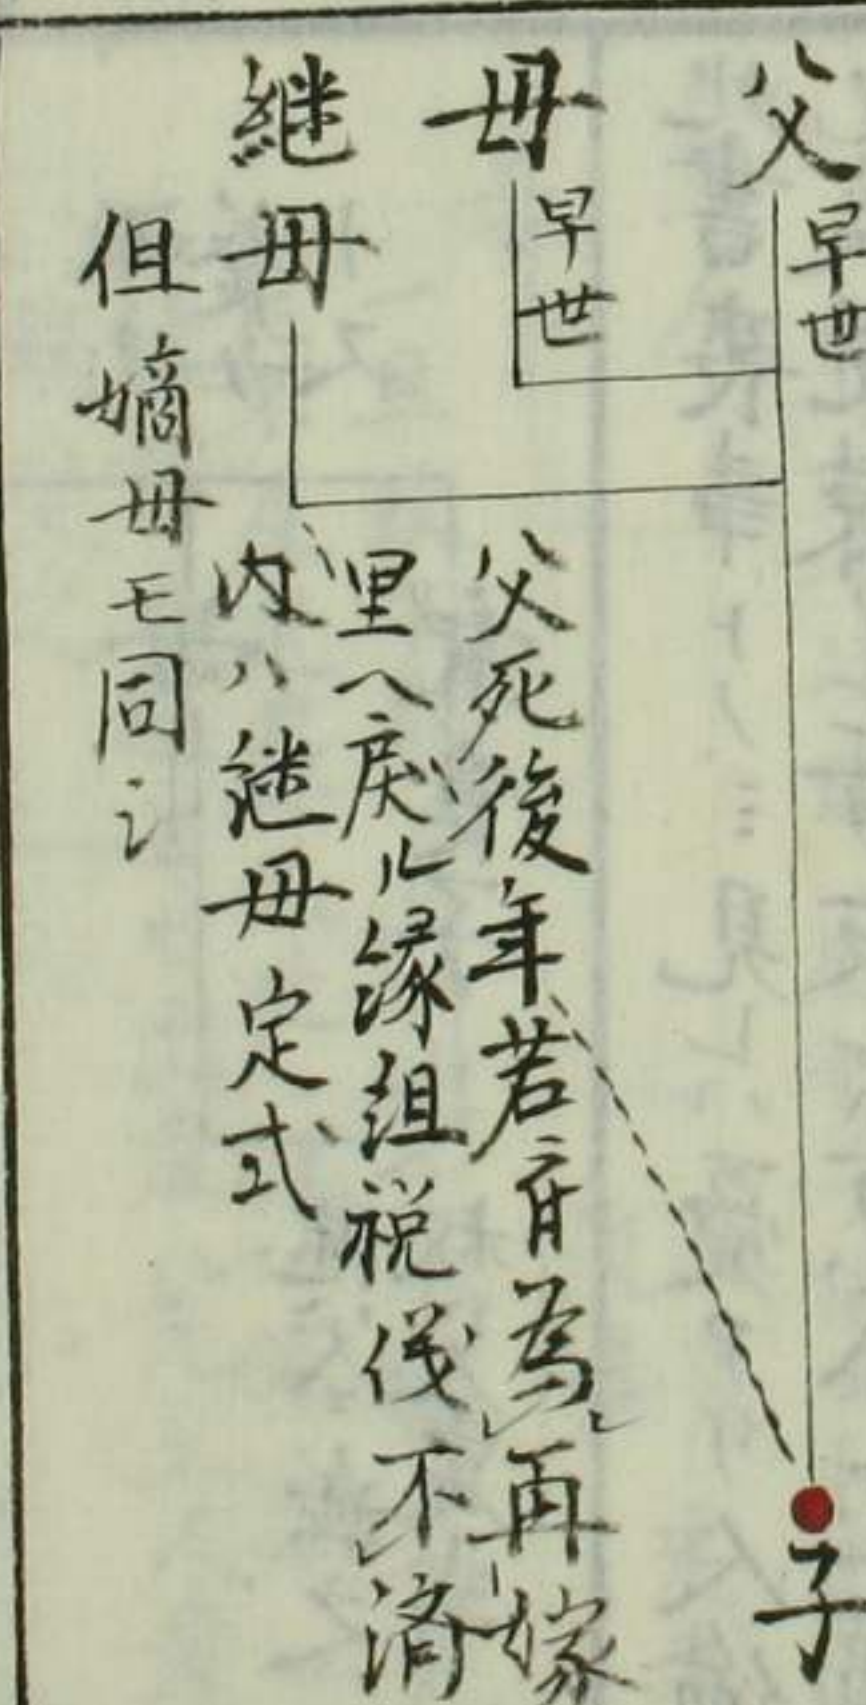 父 早世
子
母 早世
継母
父死後年若為再嫁
里ヘ戻ル縁組祝儀不済
内ハ継母定式
但嫡母モ同シ